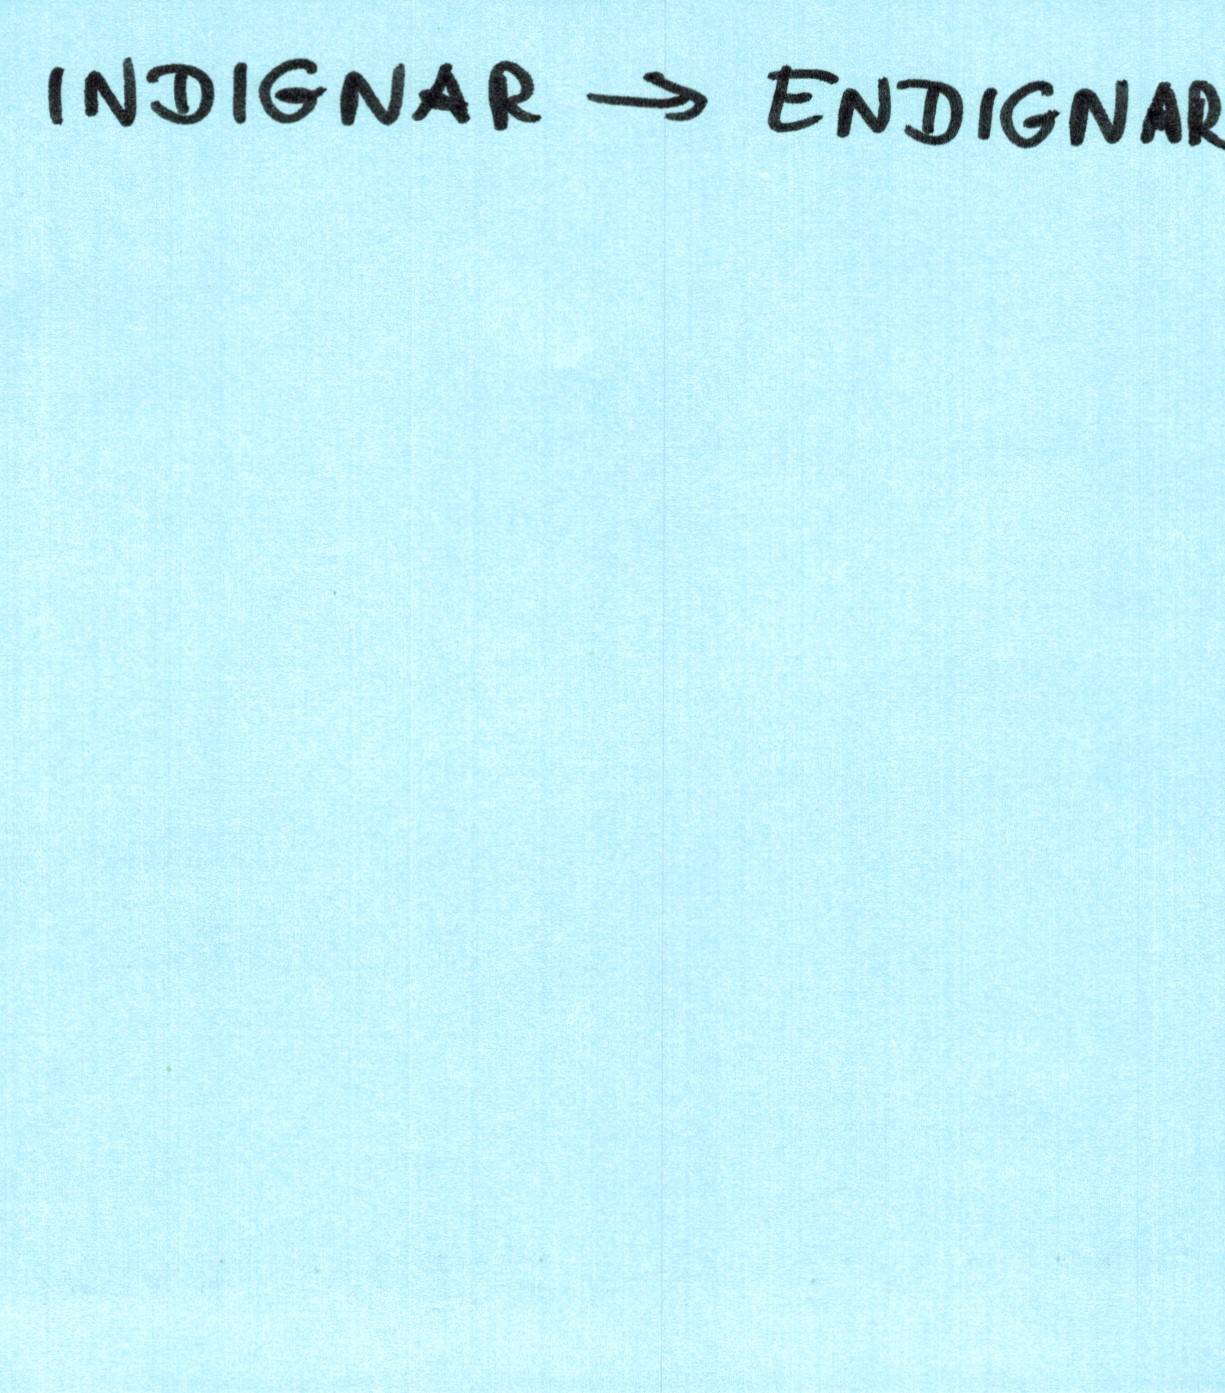 INDIGNAR → ENDIGNAR